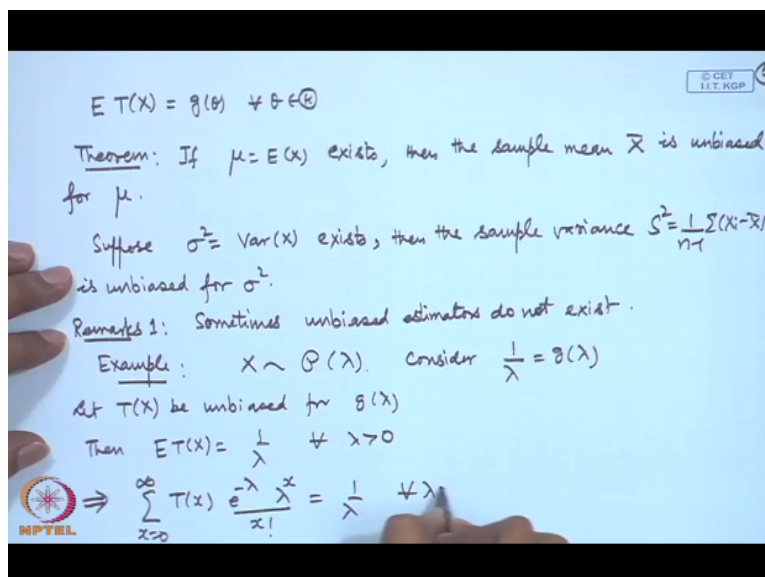 © CET
I.I.T. KGP
E T(X) = g(θ) ∀ θ ∈ Ⓗ
Theorem: If μ = E(X) exists, then the sample mean X̄ is unbiased
for μ.
Suppose σ² = Var(X) exists, then the sample variance S² = 1/(n-1) Σ(Xi - X̄)
is unbiased for σ².
Remarks 1: Sometimes unbiased estimators do not exist.
Example: X ~ P(λ). Consider 1/λ = g(λ)
Let T(X) be unbiased for g(λ)
Then E T(X) = 1/λ ∀ λ > 0
⇒ ∑_{x=0}^{∞} T(x) e^{-λ} λ^x / x! = 1/λ ∀ λ
NPTEL